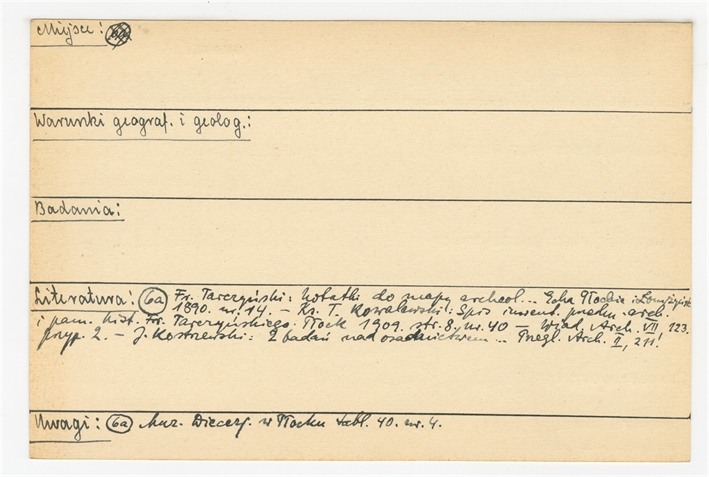 Miejsce:
Warunki geograf. i geolog.:
Badania:
Literatura: 6a Fr. Tarczyński: Notatki do mapy archeol... Echa Płockie i Łomżyńskie
1890. nr. 14. – Ks. T. Kowalewski: Spis inwent. przedm. arch.
i pam. hist. Fr. Tarczyńskiego. Płock 1909. str. 8. nr. 40 – Wiad. Arch. VII, 123.
przyp. 2. – J. Kostrzewski: Z badań nad osadnictwem... Przegl. Arch. II, 211!
Uwagi: 6a Muz. Diecezj. w Płocku tabl. 40. nr. 4.